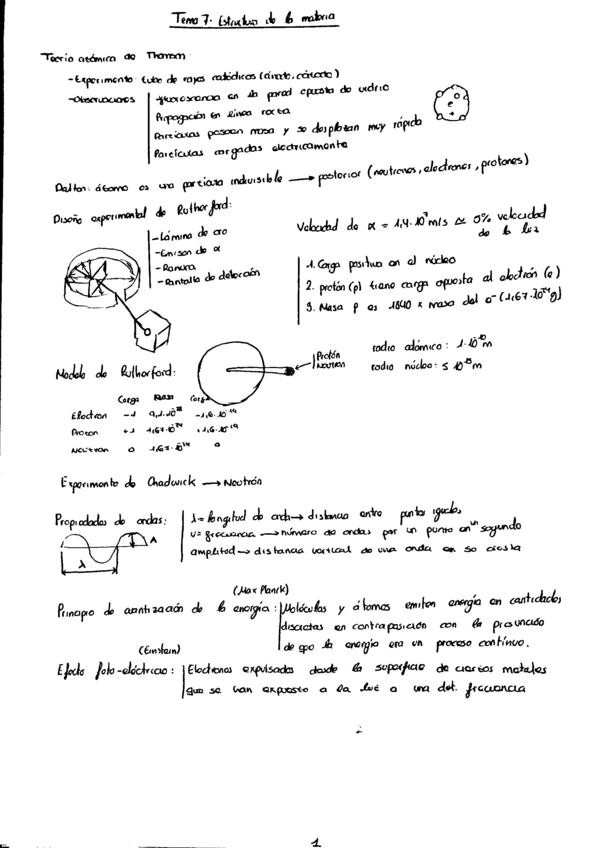 Tema 7. Estructura de la materia
Teoría atómica de Thomson:
-Experimento: tubo de rayos catódicos (ánodo, cátodo)
-Observaciones
fluorescencia en la pared opuesta de vidrio
Propagación en línea recta
Partículas poseen masa y se desplazan muy rápido
Partículas cargadas electricamente
e-
+
Dalton: átomo es una partícula indivisible → posterior (neutrones, electrones, protones)
Diseño experimental de Rutherford:
-Lámina de oro
-Emison de α
-Ranura
-Pantalla de detección
Velocidad de α = 1,4·10⁷ m/s ≃ 5% velocidad
de la luz
1. Carga positiva en el núcleo
2. protón (p) tiene carga opuesta al electrón (e)
3. Masa p es 1840 x masa del e⁻ (1,67·10⁻²⁴g)
Modelo de Rutherford:
Protón
Neutron
radio atómico: 1·10⁻¹⁰m
radio núcleo: 5 10⁻¹⁵m
Carga Masa Carga
Electron -1 9,1·10⁻²⁸ -1,6·10⁻¹⁹
Proton +1 1,67·10⁻²⁴ +1,6·10⁻¹⁹
Neutron 0 1,67·10⁻²⁴ 0
Experimento de Chadwick → Neutrón
Propiedades de ondas:
λ= longitud de onda → distancia entre puntos iguales
ν= frecuencia → número de ondas por un punto en un segundo
amplitud → distancia vertical de una onda en so cresta
A
λ
(Max Planck)
Principio de cuantización de la energía:
Moléculas y átomos emiten energía en cantidades
discretas en contraposición con la
de que la energía era un proceso contínuo.
(Einstein)
Efecto foto-eléctrico:
Electrones expulsados desde la superficie de ciertos metales
que se han expuesto a la luz a una det. frecuencia
1